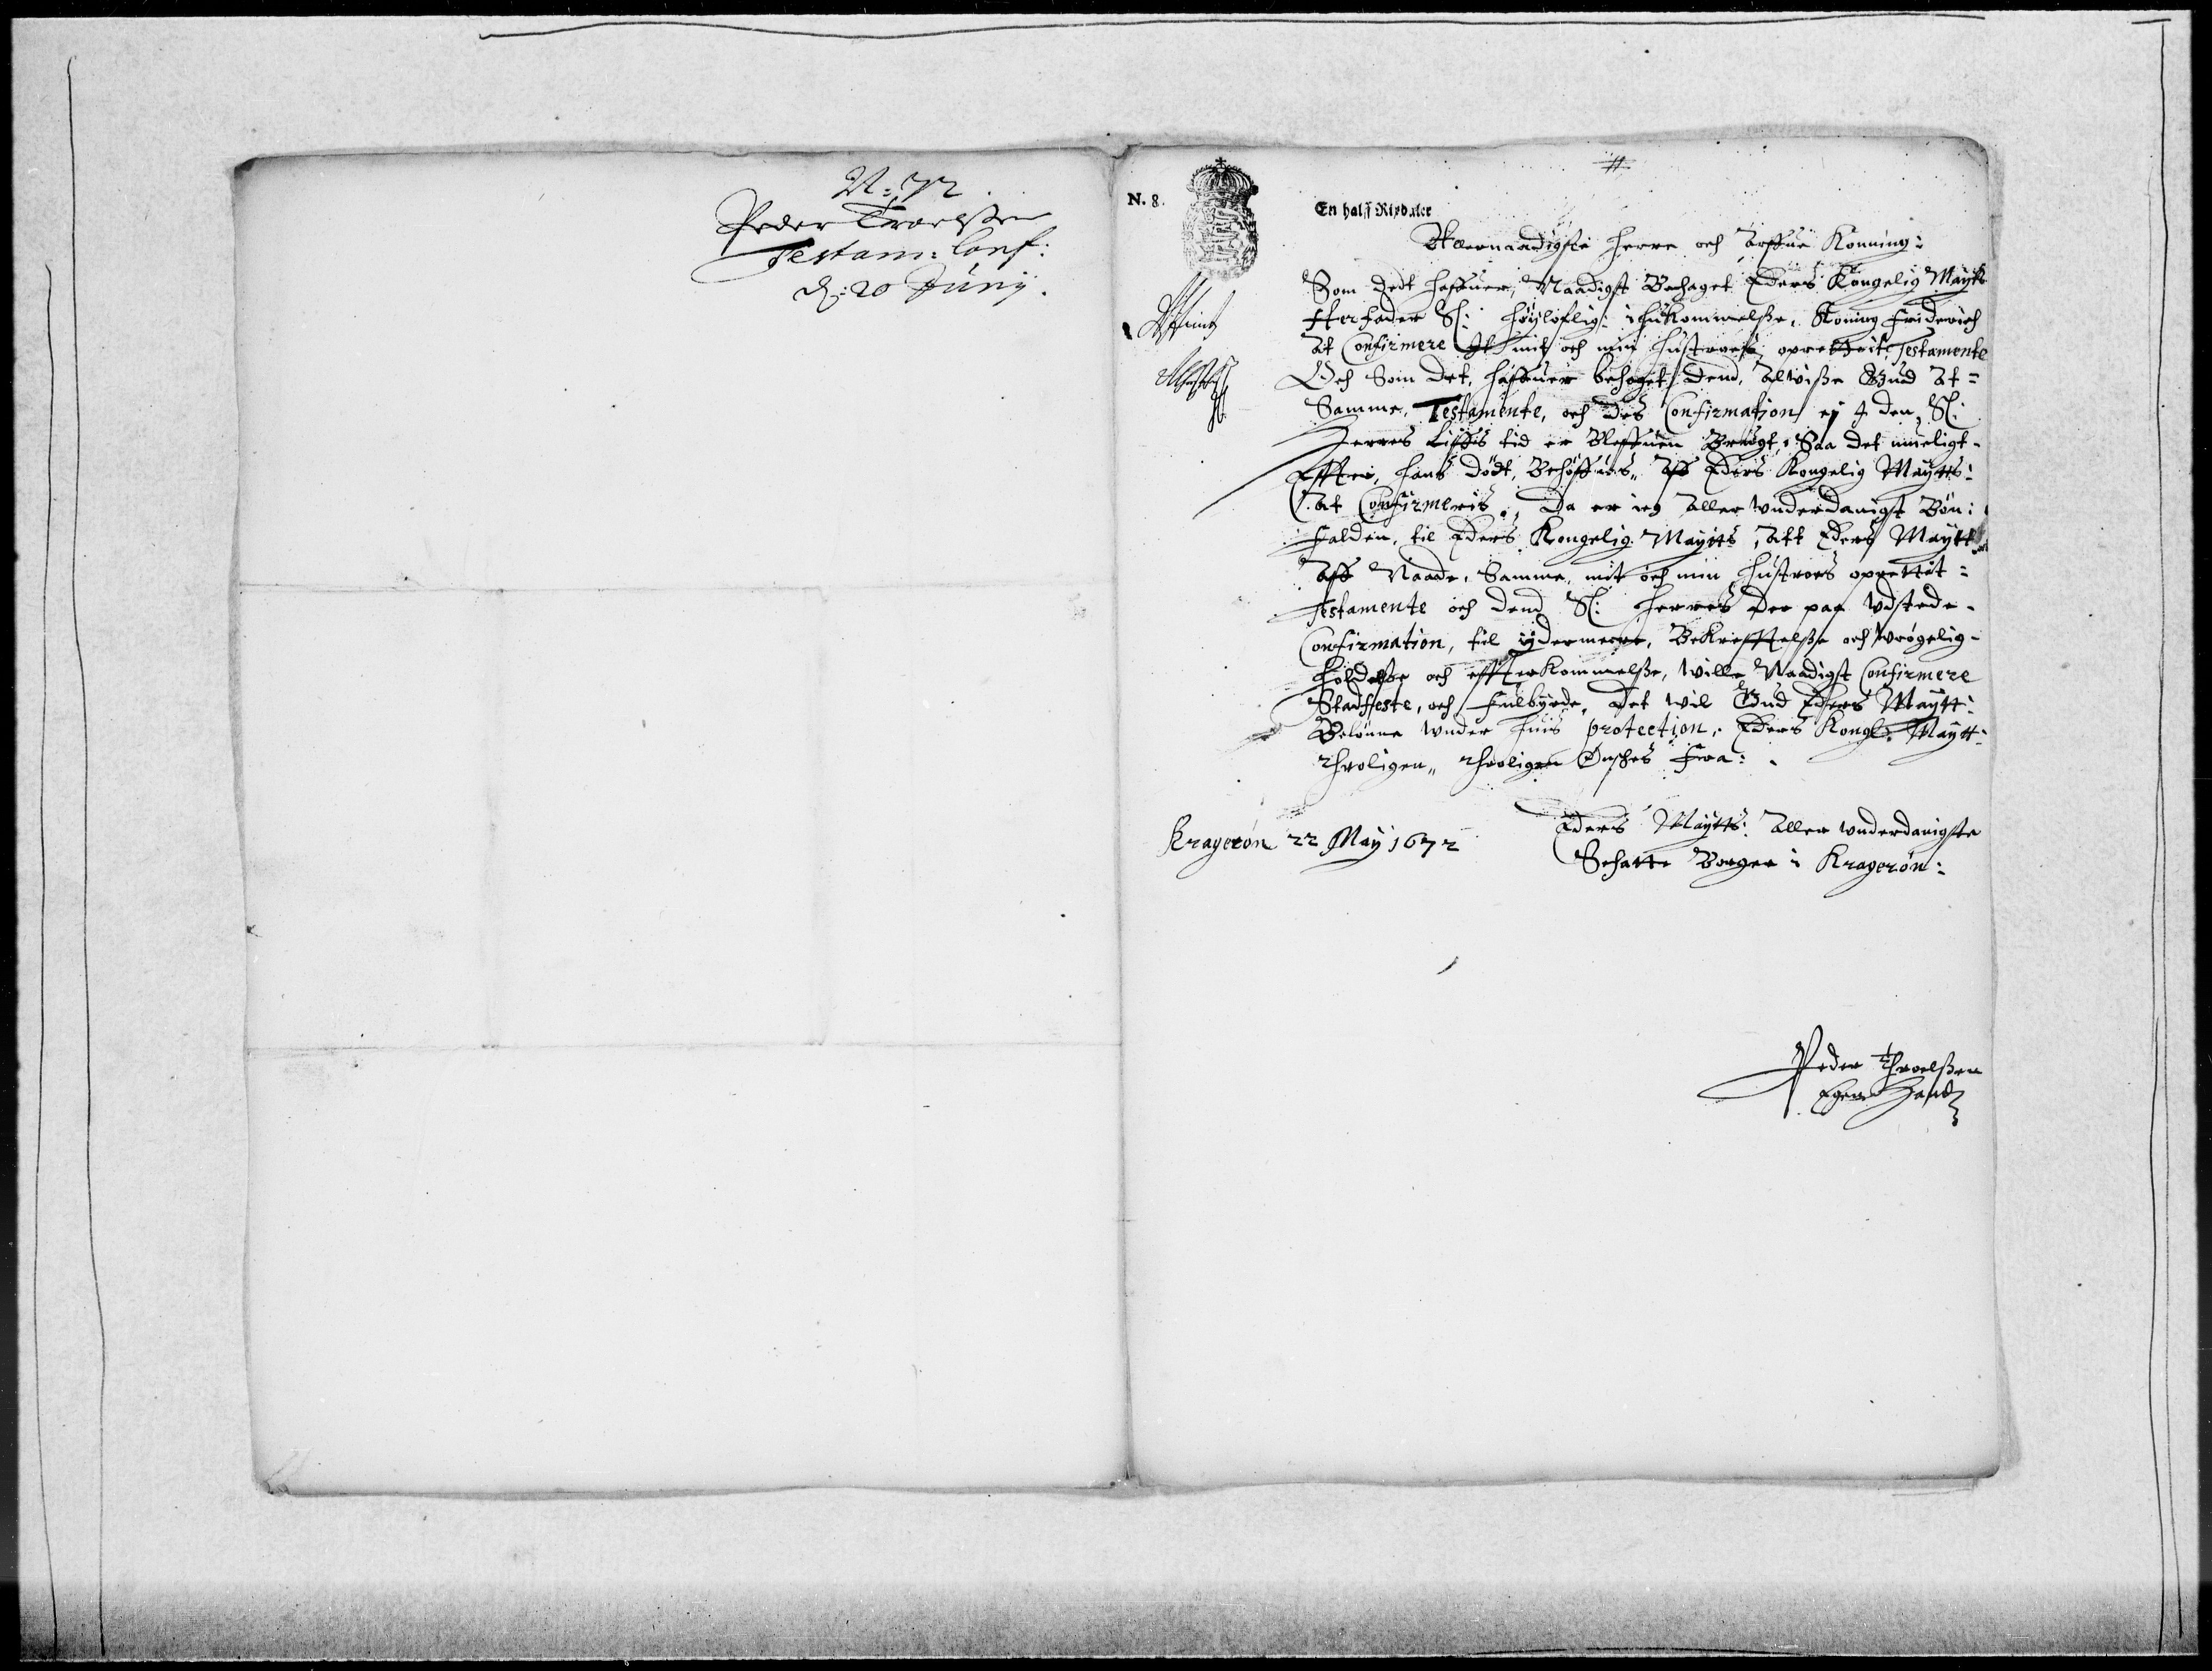 N: 72.
Peder Troelssen
Testam: Conf:
d: 20 Junij.
N. 8.
En halff Rixdaler
Allernaadigste Herre och Arffue Konning:
Som Dedt haffuer, Naadigst Behaget Eders Kongelig Maytts
Herfader Sl: Høyloflig: ihukommelsse, Koning Friderich
At Confirmere Et mit och min Hustroes oprettit Testamente
Och Som Det, haffuer behaget Dend, Alviisse Gud At=
Samme, Testamente, och Des Confirmation ej I den Sl:
Herres Liffs tid er Bleffuen Brugt, Saa det nu
Effter, hans Dødt, Behøffues, Aff Eders Kongelig Maytts:
At Confirmeris, Da er ieg Aller Underdanigst Bøn:
falden, til Eders Kongelig Maytts, Att Eders Maytt
Aff Naade, Samme, mit och min Hustroes oprettit=
Testamente och Dend Sl: Herres Der paa Udstede-
Confirmation, til ydermeere, Bekrefftelsse och Urøgelig-
holdelsse och effterkommelsse, Wille Naadigst Confirmere
Stadfeste, och Fulbyrde, Det wil Gud Eders Maytt:
Belønne Under huis protection, Eders Kongl: Maytt:
throligen, throligen Ønsches Fra:
Kragerøn 22 May 1672
Eders Maytts: Aller Underdanigste
Schatte Borger i Kragerøn:
Peder Throelssen
Egen Hand